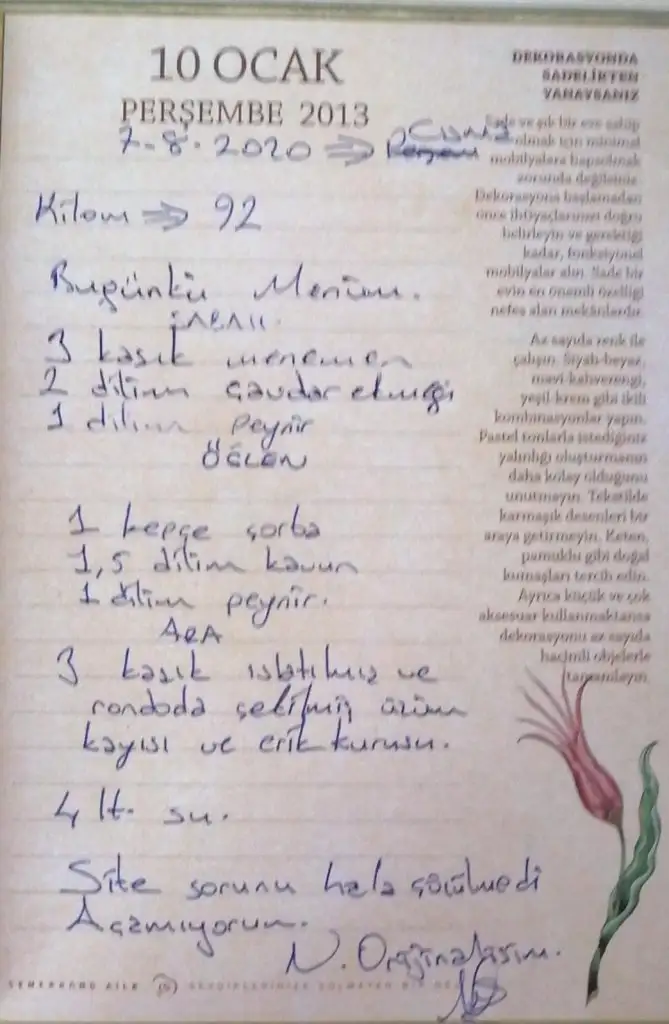 10 OCAK
PERŞEMBE 2013
7-8-2020 ⇒ Cuma
Kilom ⇒ 92
Bugünkü Menüm.
SABAH.
3 kaşık menemen
2 dilim çavdar ekmeği
1 dilim peynir
ÖĞLEN
1 kepçe çorba
1,5 dilim kavun
1 dilim peynir.
ARA
3 kaşık ıslatılmış ve
rondoda çekilmiş üzüm
kayısı ve erik kurusu.
4 lt. su.
Site sorunu hala çözülmedi
Açamıyorum.
N.
DEKORASYONDA
SADELİKTEN
YANAYSANIZ
Sade ve şık bir eve sahip
olmak için minimal
mobilyalara hapsolmak
zorunda değilsiniz.
Dekorasyona başlamadan
önce ihtiyaçlarınızı doğru
belirleyin ve gerektiği
kadar, fonksiyonel
mobilyalar alın. Sade bir
evin en önemli özelliği
nefes alan mekânlardır.
Az sayıda renk ile
çalışın. Siyah-beyaz,
mavi-kahverengi,
yeşil-krem gibi ikili
kombinasyonlar yapın.
Pastel tonlarla istediğiniz
yalınlığı oluşturmanın
daha kolay olduğunu
unutmayın. Tekstilde
karmaşık desenleri bir
araya getirmeyin. Keten,
pamuklu gibi doğal
kumaşları tercih edin.
Ayrıca küçük ve çok
aksesuar kullanmaktansa
dekorasyonu az sayıda
hacimli objelerle
tamamlayın.
SEMERKAND AİLE